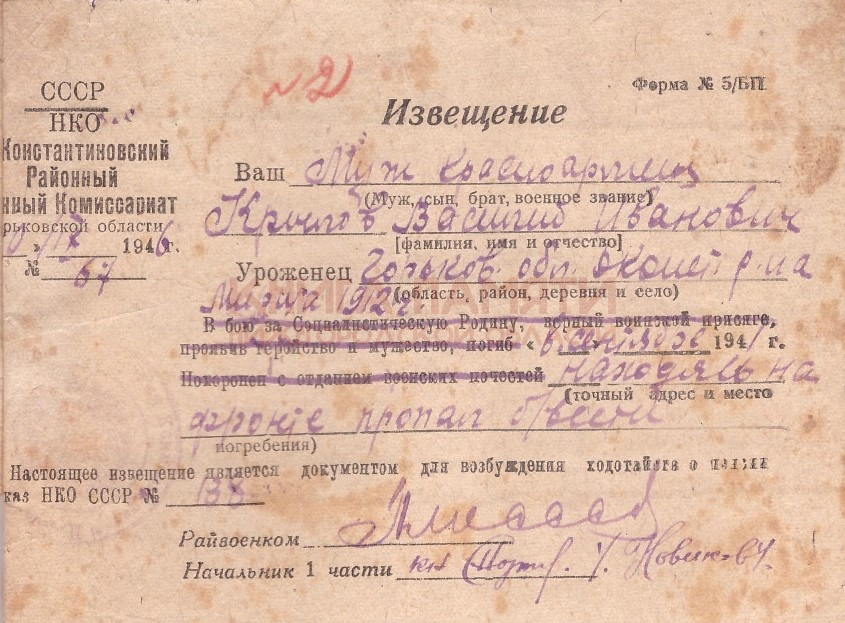 № 2
Форма № 5/БП
СССР
НКО
Извещение
Константиновский
Районный
нный Комиссариат
рьковской области
17 1946 г.
№ 67
Ваш Муж красноармеец
(Муж, сын, брат, военное звание)
Крылов Василий Иванович
[фамилия, имя и отчество]
Уроженец Горьков. обл. Дконст р-на
(область, район, деревня и село)
1912 г.
В бою за Социалистическую Родину, верный воинской присяге,
проявив геройство и мужество, погиб « сентябре 1941 г.
Похоронен с отданием воинских почестей находясь на
(точный адрес и место
фронте пропал б/вести
погребения)
Настоящее извещение является документом для возбуждения ходотайств о
каз НКО СССР № 138
Райвоенком
Начальник 1 части